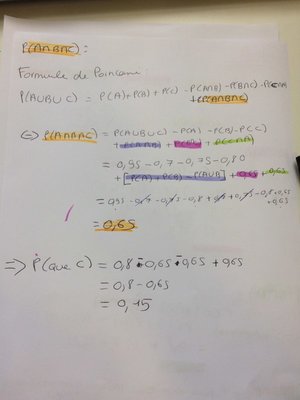 P(A∩B∩C) :
Formule de Poincaré :
P(A∪B∪C) = P(A)+P(B)+P(C) - P(A∩B) - P(B∩C) - P(C∩A)
+P(A∩B∩C)
⇔ P(A∩B∩C) = P(A∪B∪C) - P(A) - P(B) - P(C)
+ P(A∩B) + P(B∩C) + P(C∩A)
= 0,95 - 0,7 - 0,75 - 0,80
+ [P(A) + P(B) - P(A∪B)] + 0,65 + 0,65
= 0,95 - 0,7 - 0,75 - 0,8 + 0,7 + 0,75 - 0,8 + 0,65
+0,65
= 0,65
⇒ P(que C) = 0,8 - 0,65 - 0,65 + 0,65
= 0,8 - 0,65
= 0,15